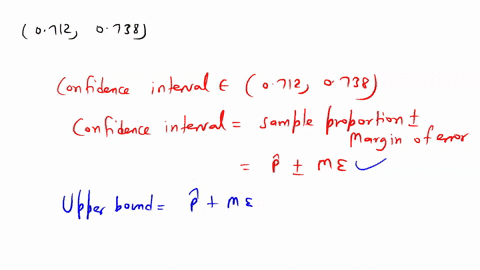 (0.712, 0.738)
Confidence interval ∈ (0.712, 0.738)
Confidence interval = sample proportion ±
Margin of error
= p̂ ± ME ✓
Upper bound = p̂ + ME